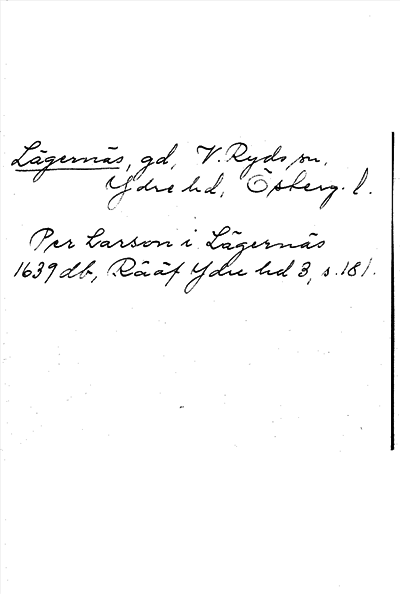 Lägernäs, gd, V. Ryds sn,
Ydre hd, Östberg. l.
Per Larson i Lägernäs
1639 db, Rääf Ydre hd 3, s. 181.